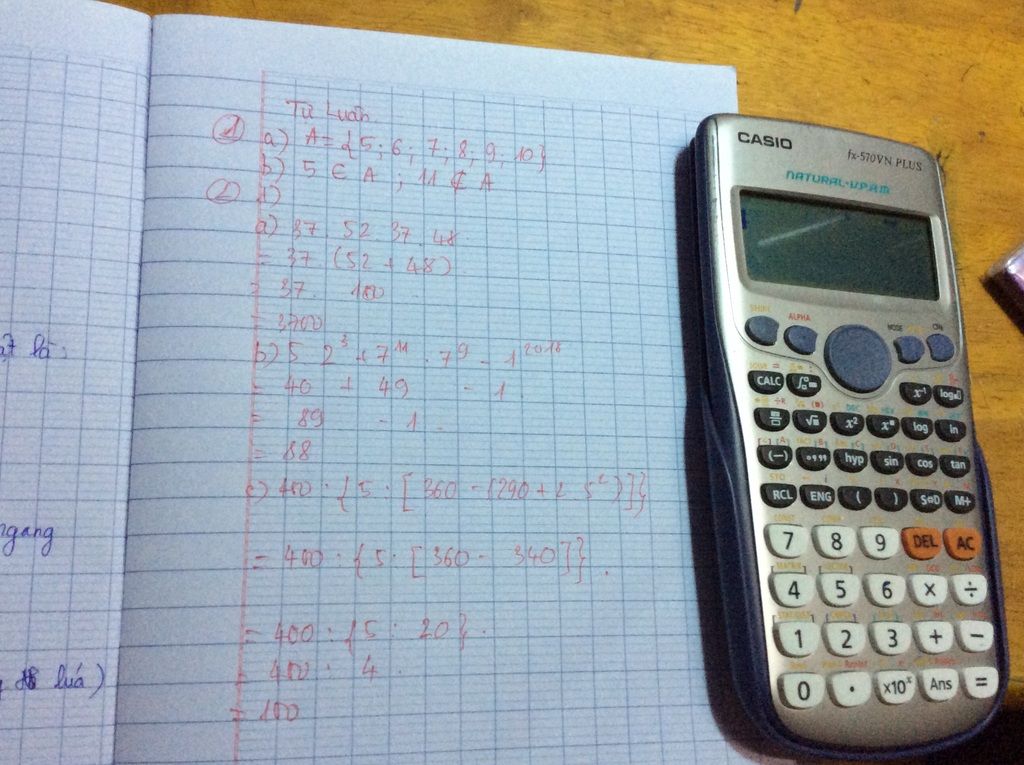 Tự Luận
① a) A = {5; 6; 7; 8; 9; 10}
b) 5 ∈ A ; 11 ∉ A
② 1)
a) 37 . 52 37 . 48
= 37 (52 + 48)
= 37 . 100
= 3700
b) 5 2³ + 7¹¹ . 7⁹ - 1²⁰¹⁸
= 40 + 49 - 1
= 89 - 1
= 88
c) 400 : {5 . [360 - (290 + 2 5²)]}
= 400 : {5 . [360 - 340]}
= 400 : {5 : 20}
= 400 : 4
= 100
ngang
lúa)
CASIO
fx-570VN PLUS
NATURAL-V.P.A.M.
SHIFT ALPHA MODE ON
CALC x⁻¹ log
x² log ln
(-) hyp sin cos tan
RCL ENG ( ) S⇔D M+
7 8 9 DEL AC
4 5 6 × ÷
1 2 3 + −
0 . ×10ˣ Ans =